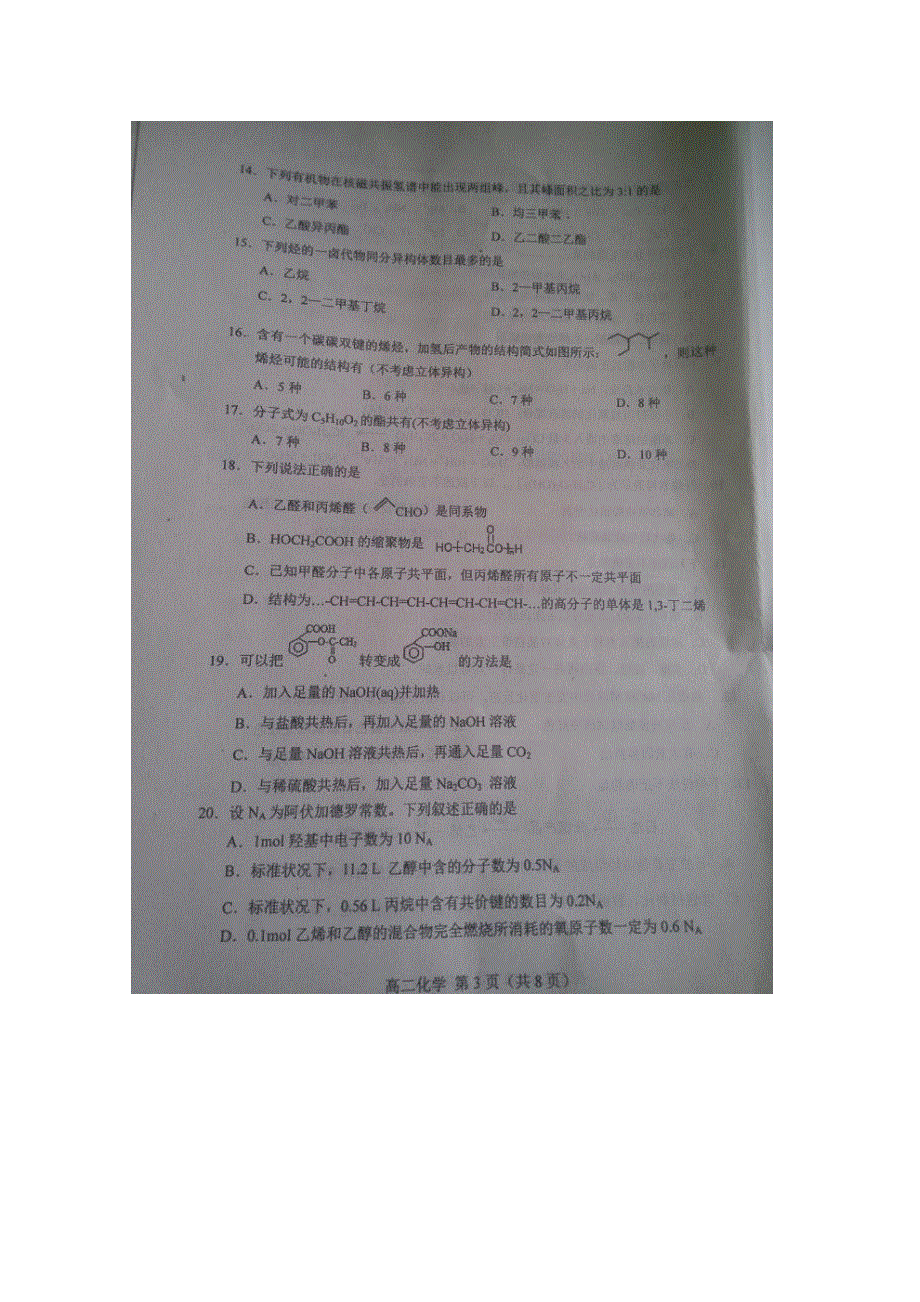 14. 下列有机物在核磁共振氢谱中能出现两组峰，且其峰面积之比为3:1的是
A. 对二甲苯 B. 均三甲苯
C. 乙酸异丙酯 D. 乙二酸二乙酯
15. 下列烃的一卤代物同分异构体数目最多的是
A. 乙烷 B. 2—甲基丙烷
C. 2, 2—二甲基丁烷 D. 2, 2—二甲基丙烷
16. 含有一个碳碳双键的烯烃，加氢后产物的结构简式如图所示： ，则这种
烯烃可能的结构有（不考虑立体异构）
A. 5种 B. 6种 C. 7种 D. 8种
17. 分子式为C₅H₁₀O₂的酯共有(不考虑立体异构)
A. 7种 B. 8种 C. 9种 D. 10种
18. 下列说法正确的是
A. 乙醛和丙烯醛（ CHO）是同系物
B. HOCH₂COOH的缩聚物是 HO-[-CH₂CO-]ₙH
O
C. 已知甲醛分子中各原子共平面，但丙烯醛所有原子不一定共平面
D. 结构为…-CH=CH-CH=CH-CH=CH-CH=CH-…的高分子的单体是1,3-丁二烯
19. 可以把 COOH -O-C-CH₃ O 转变成 COONa -OH 的方法是
A. 加入足量的NaOH(aq)并加热
B. 与盐酸共热后，再加入足量的NaOH溶液
C. 与足量NaOH溶液共热后，再通入足量CO₂
D. 与稀硫酸共热后，加入足量Na₂CO₃溶液
20. 设N_A为阿伏加德罗常数。下列叙述正确的是
A. 1mol羟基中电子数为10 N_A
B. 标准状况下，11.2 L 乙醇中含的分子数为0.5N_A
C. 标准状况下，0.56 L丙烷中含有共价键的数目为0.2N_A
D. 0.1mol乙烯和乙醇的混合物完全燃烧所消耗的氧原子数一定为0.6 N_A
高二化学 第3页（共8页）